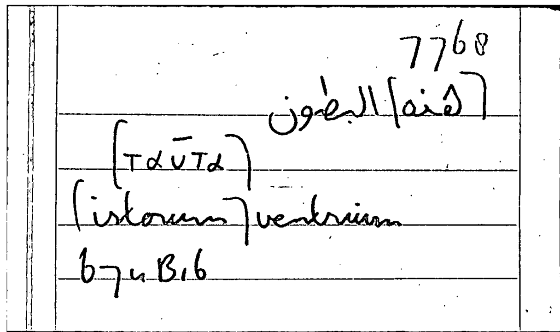 7768
[هذه] البطون
[ταῦτα]
[istorum] ventrium
67u B,6